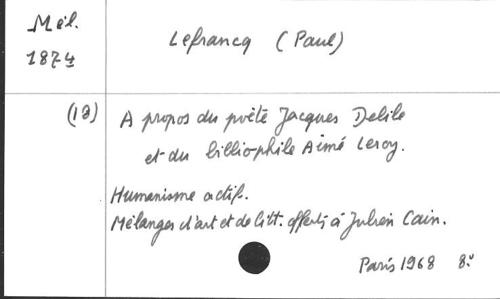 Mél.
1874
Lefrancq (Paul)
(12)
A propos du poète Jacques Delile
et du bibliophile Aimé Leroy.
Humanisme actif.
Mélanges d'art et de litt. offerts à Julien Cain.
Paris 1968 8°